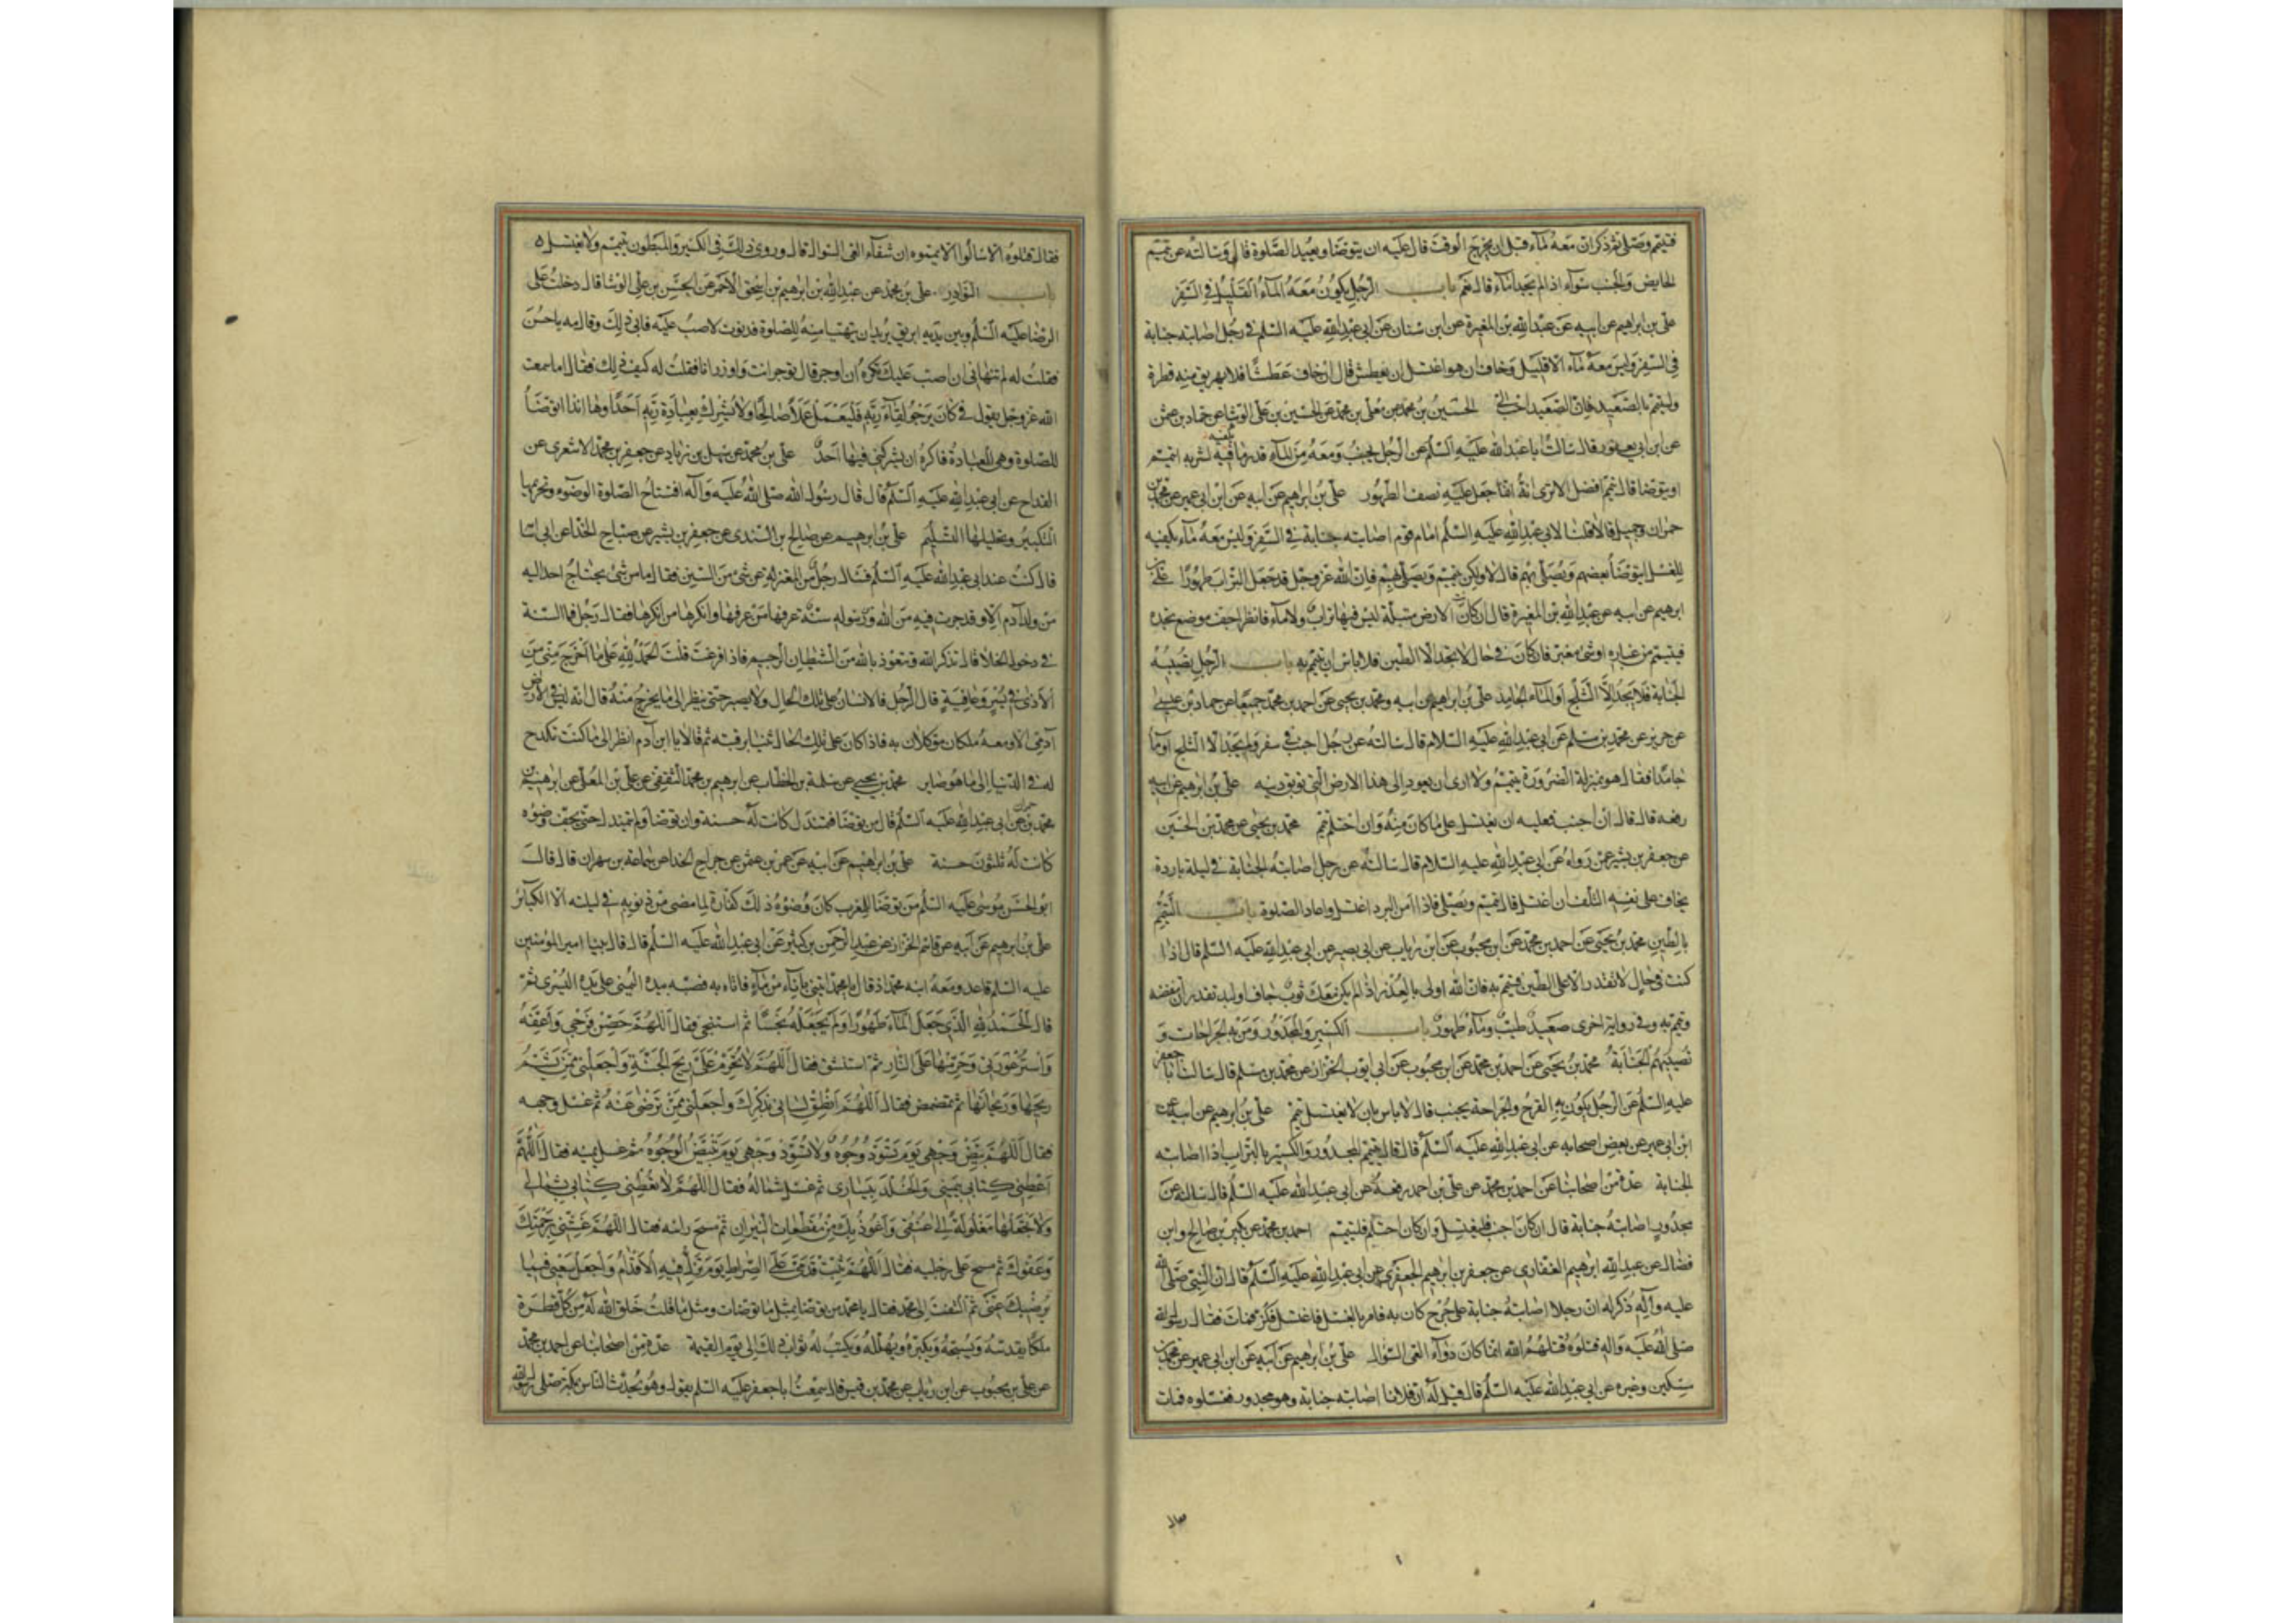 فتيمم وصلى ثم ذكر ان معه ماء قبل ان يخرج الوقت قال عليه ان يتوضا ويعيد الصلوة قال وسالته عن تيمم
الحايض والجنب سواء اذا لم يجدا ماء قال نعم باب الرجل يكون معه الماء القليل في السفر
على بن ابرهيم عن ابيه عن عبد الله بن المغيرة عن ابن سنان عن ابى عبد الله عليه السلم في رجل اصابته جنابة
في السفر وليس معه ماء الا قليل وخاف ان هو اغتسل ان يعطش قال ان خاف عطشا فلا يهريق منه قطرة
وليتيمم بالصعيد فان الصعيد احب الى الحسين بن محمد عن معلى بن محمد عن الحسن بن على الوشا عن حماد بن عثمن
عن ابن ابى يعفور قال سالت ابا عبد الله عليه السلم عن الرجل يجنب ومعه من الماء قدر ما يكفيه لشربه ايتيمم
او يتوضا قال تيمم افضل الا ترى انه انما جعل عليه نصف الطهور على بن ابرهيم عن ابيه عن ابن ابى عمير عن محمد بن
حمران وجميل قالا قلنا لابى عبد الله عليه السلم امام قوم اصابته جنابة في السفر وليس معه ماء يكفيه
للغسل ايتوضا بعضهم ويصلى بهم قال لا ولكن يتيمم ويصلى بهم فان الله عز وجل قد جعل التراب طهورا على بن
ابرهيم عن ابيه عن عبد الله بن المغيرة قال ان كانت الارض مبتلة ليس فيها تراب ولا ماء فانظر اجف موضع تجده
فتيمم من غباره او شئ مغبر فان كان في حال لا تجد الا الطين فلا باس ان تيمم به باب الرجل يصيبه
الجنابة فلا يجد الا الثلج او الماء الجامد على بن ابرهيم عن ابيه ومحمد بن يحيى عن احمد بن محمد جميعا عن حماد بن عيسى
عن حريز عن محمد بن مسلم عن ابى عبد الله عليه السلام قال سالته عن رجل اجنب في سفر ولم يجد الا الثلج او ماء
جامدا فقال هو بمنزلة الضرورة يتيمم ولا ارى ان يعود الى هذا الارض التى توبق دينه على بن ابرهيم عن ابيه
رفعه قال قال ان اجنب فعليه ان يغتسل على ما كان منه وان احتلم تيمم محمد بن يحيى عن محمد بن الحسين
عن جعفر بن بشير عمن رواه عن ابى عبد الله عليه السلام قال سالته عن رجل اصابته الجنابة في ليلة باردة
يخاف على نفسه التلف ان اغتسل قال يتيمم ويصلى فاذا امن البرد اغتسل واعاد الصلوة باب التيمم
بالطين محمد بن يحيى عن احمد بن محمد عن ابن محبوب عن ابن رياب عن ابى بصير عن ابى عبد الله عليه السلم قال اذا
كنت في حال لا تقدر الا على الطين فتيمم به فان الله اولى بالعذر اذا لم يكن معك ثوب جاف او لبد تقدر ان تنفضه
وتيمم به وفى رواية اخرى صعيد طيب وماء طهور باب الكسير والمجذور ومن به الجراحات و
تصيبهم الجنابة محمد بن يحيى عن احمد بن محمد عن ابن محبوب عن ابى ايوب الخزاز عن محمد بن مسلم قال سالت ابا جعفر
عليه السلم عن الرجل يكون به القرح والجراحة يجنب قال لا باس بان لا يغتسل تيمم على بن ابرهيم عن ابيه عن
ابن ابى عمير عن بعض اصحابه عن ابى عبد الله عليه السلم قال قال يتيمم المجدور والكسير بالتراب اذا اصابته
الجنابة عدة من اصحابنا عن احمد بن محمد عن على بن احمد رفعه عن ابى عبد الله عليه السلم قال سالته عن
مجدور اصابته جنابة قال ان كان اجنب فليغتسل وان كان احتلم فليتيمم احمد بن محمد عن بكر بن صالح وابن
فضال عن عبد الله ابرهيم الغفارى عن جعفر بن ابرهيم الجعفرى عن ابى عبد الله عليه السلم قال ان النبى صلى الله
عليه واله ذكر له ان رجلا اصابته جنابة على جرح كان به فامر بالغسل فاغتسل فكز فمات فقال رسول الله
صلى الله عليه واله قتلوه قتلهم الله انما كان دواء العى السؤال على بن ابرهيم عن ابيه عن ابن ابى عمير عن محمد بن
سكين وغيره عن ابى عبد الله عليه السلم قال قيل له ان فلانا اصابته جنابة وهو مجدور فغسلوه فمات
فقال قتلوه الا سالوا الا يمموه ان شفاء العى السؤال قال وروى ذلك في الكسير والمبطون يتيمم ولا يغتسل
باب النوادر على بن محمد عن عبد الله بن ابرهيم بن اسحق الاحمر عن الحسن بن على الوشا قال دخلت على
الرضا عليه السلم وبين يديه ابريق يريد ان يتهيا منه للصلوة فدنوت لاصب عليه فابى ذلك وقال مه يا حسن
فقلت له لم تنهانى ان اصب عليك تكره ان اوجر قال توجر انت واوزر انا فقلت له كيف ذلك فقال اما سمعت
الله عز وجل يقول فمن كان يرجو لقاء ربه فليعمل عملا صالحا ولا يشرك بعبادة ربه احدا وها انذا اتوضا
للصلوة وهى العبادة فاكره ان يشركنى فيها احد على بن محمد عن سهل بن زياد عن جعفر بن محمد الاشعرى عن
القداح عن ابى عبد الله عليه السلم قال قال رسول الله صلى الله عليه واله افتتاح الصلوة الوضوء وتحريمها
التكبير وتحليلها التسليم على بن ابرهيم عن صالح بن السندى عن جعفر بن بشير عن صباح الحذا عن ابى اسا
قال كنت عند ابى عبد الله عليه السلم فساله رجل من المغيرية عن شئ من السنن فقال ما من شئ يحتاج احد اليه
من ولد آدم الا وقد جرت فيه من الله ورسوله سنة عرفها من عرفها وانكرها من انكرها فقال رجل فما السنة
في دخول الخلا قال تذكر الله وتتعوذ بالله من الشيطان الرجيم فاذا فرغت قلت الحمد لله على ما اخرج منى من
الاذى في يسر وعافية قال الرجل فالانسان على تلك الحال ولا يصبر حتى ينظر الى ما يخرج منه قال انه ليس في الارض
آدمى الا ومعه ملكان موكلان به فاذا كان على تلك الحال ثنيا برقبته ثم قالا يا ابن آدم انظر الى ما كنت تكدح
له في الدنيا الى ما هو صاير محمد بن يحيى عن سلمة بن الخطاب عن ابرهيم بن محمد الثقفى عن على بن المعلى عن ابرهيم بن
محمد بن حمران عن ابى عبد الله عليه السلم قال من توضا فتمندل كانت له حسنة وان توضا ولم يتمندل حتى يجف وضوه
كانت له ثلثون حسنة على بن ابرهيم عن ابيه عن عمر بن عثمن عن جراح الحذا عن سماعة بن مهران قال قال
ابو الحسن موسى عليه السلم من توضا للمغرب كان وضوه ذلك كفارة لما مضى من ذنوبه في ليلته الا الكبائر
على بن ابرهيم عن ابيه عن قاسم الخزاز عن عبد الرحمن بن كثير عن ابى عبد الله عليه السلم قال قال بينا امير المؤمنين
عليه السلم قاعد ومعه ابنه محمد اذ قال يا محمد ايتنى باناء من ماء فاتاه به فصبه بيده اليمنى على يده اليسرى ثم
قال الحمد لله الذى جعل الماء طهورا ولم يجعله نجسا ثم استنجى فقال اللهم حصن فرجى واعفه
واستر عورتى وحرمها على النار ثم استنشق فقال اللهم لا تحرم على ريح الجنة واجعلنى ممن يشم
ريحها وريحانها ثم تمضمض فقال اللهم انطق لسانى بذكرك واجعلنى ممن ترضى عنه ثم غسل وجهه
فقال اللهم بيض وجهى يوم تسود وجوه ولا تسود وجهى يوم تبيض الوجوه ثم غسل يمينه فقال اللهم
اعطنى كتابى بيمينى والخلد بيسارى ثم غسل شماله فقال اللهم لا تعطنى كتابى بشمالى
ولا تجعلها مغلولة الى عنقى واعوذ بك من مقطعات النيران ثم مسح راسه فقال اللهم غشنى برحمتك
وعفوك ثم مسح على رجليه فقال اللهم ثبت قدمى على الصراط يوم تزل فيه الاقدام واجعل سعيى فيما
يرضيك عنى ثم التفت الى محمد فقال يا محمد من توضا بمثل ما توضات ومثل ما قلت خلق الله له من كل قطرة
ملكا يقدسه ويسبحه ويكبره ويهلله ويكتب له ثواب ذلك الى يوم القيمة عدة من اصحابنا عن احمد بن محمد
عن على بن محبوب عن ابن رياب عن محمد بن قيس قال سمعت ابا جعفر عليه السلم يقول وهو يحدث الناس بمكة صلى رسول الله